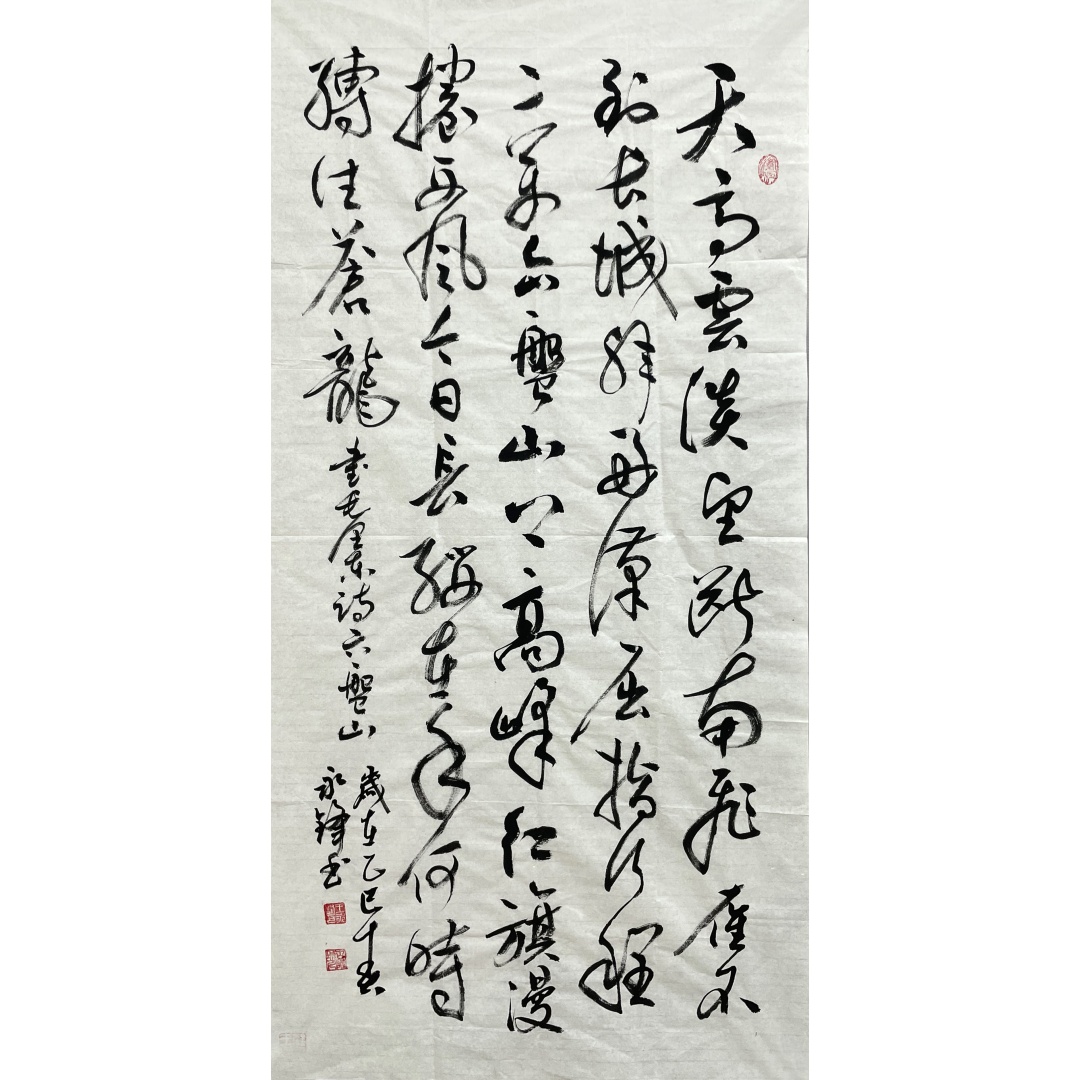 天高雲淡望斷南飛雁不
到长城非好漢屈指行程
二萬六盤山上高峰紅旗漫
捲西風今日長纓在手何時
縛住蒼龍 書毛澤東詩六盤山
歲在乙巳春
永鋒書